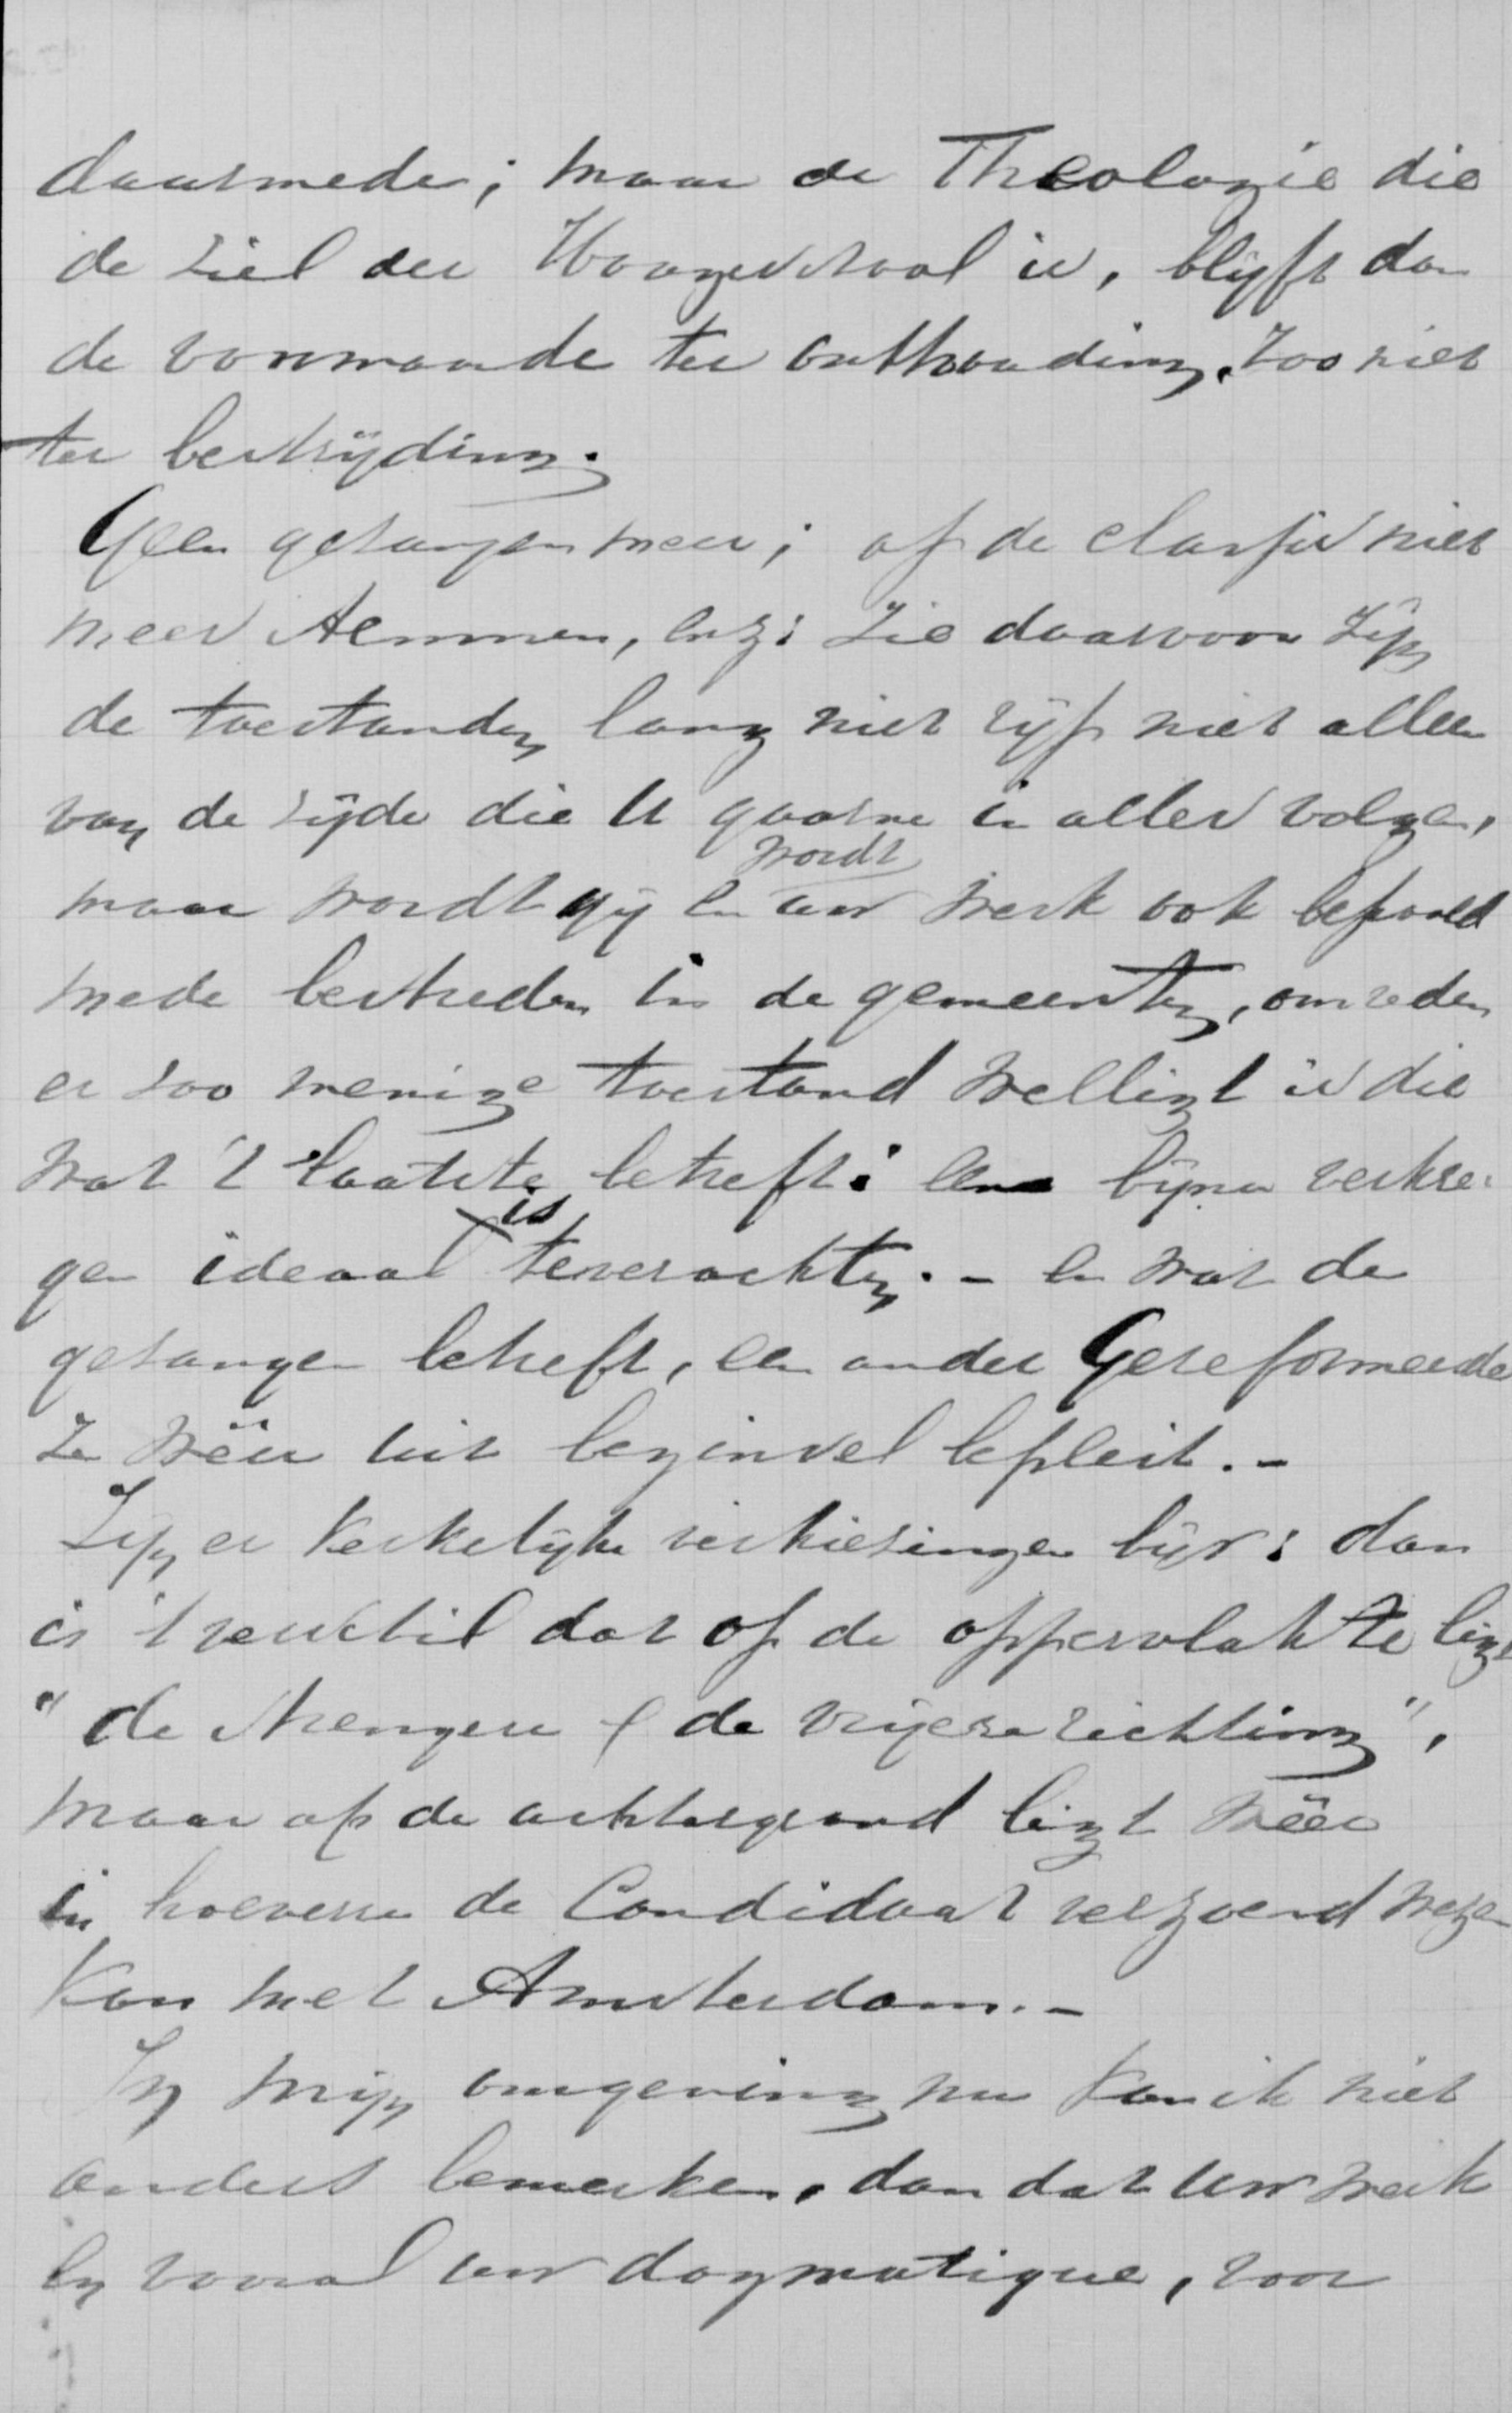 daarmede; maar de Theologie die
de ziel der Hoogeschool is, blijft dan
de voorwaarde ter onthouding, zoo niet
ter bestrijding.
Geen gezangen meer; op de classis niet
meer stemmen, enz: Zie daarvoor zijn
de toestanden lang niet rijp niet alleen
van de zijde die U gaarne in alles volgen,
maar wordt gij en uw wordt werk ook bepaald
mede bestreden in de gemeenten, omreden
er zoo menige toestand welligt is die
wat 't laatste betreft: een bijna verkre-
gen ideaal is teverachten. - en wat de
gezangen betreft, een ander Gereformeerde
ze wêer uit beginsel bepleit. -
Zijn er kerkelijke verkiezingen bijv: dan
is 't verschil dat op de oppervlakte ligt
"de strengere & de vrijere richting",
maar op de achtergrond ligt wêer
in hoeverre de Candidaat verzoend wezen
kan met Amsterdam. -
In mijn omgeving nu kan ik niet
anders bemerken, dan dat Uw werk
en vooral uw dogmatique, voor